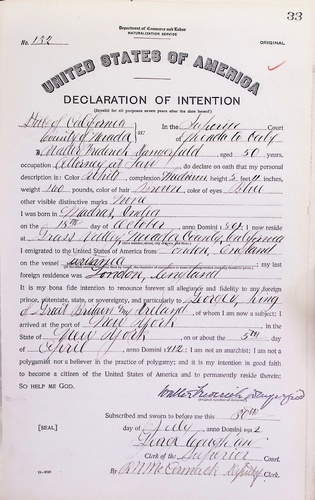 33
Department of Commerce and Labor
NATURALIZATION SERVICE
No. 132 ORIGINAL
UNITED STATES OF AMERICA
DECLARATION OF INTENTION
(Invalid for all purposes seven years after the date hereof)
State of California In the Superior Court
County of Nevada ss: of Nevada Co Caly.
I, Walter Frederick, aged 50 years,
occupation Attorney at Law, do declare on oath that my personal
description is: Color White, complexion Medium, height 5 feet 11 inches,
weight 200 pounds, color of hair Brown, color of eyes Blue
other visible distinctive marks None
I was born in Madras, India
on the 18th day of October, anno Domini 1861; I now reside
at Grass Valley, Nevada County, California
I emigrated to the United States of America from London, England
on the vessel; my last
foreign residence was London, England
It is my bona fide intention to renounce forever all allegiance and fidelity to any foreign
prince, potentate, state, or sovereignty, and particularly to George V, King
of Great Britain and Ireland, of whom I am now a subject; I
arrived at the port of New York, in the
State of New York, on or about the 5th day
of April, anno Domini 1912; I am not an anarchist; I am not a
polygamist nor a believer in the practice of polygamy; and it is my intention in good faith
to become a citizen of the United States of America and to permanently reside therein:
SO HELP ME GOD.
Walter Frederick
Subscribed and sworn to before me this 30th
[SEAL] day of July, anno Domini 1912
Clerk of the Superior Court.
By R.N. McCormack Deputy Clerk.